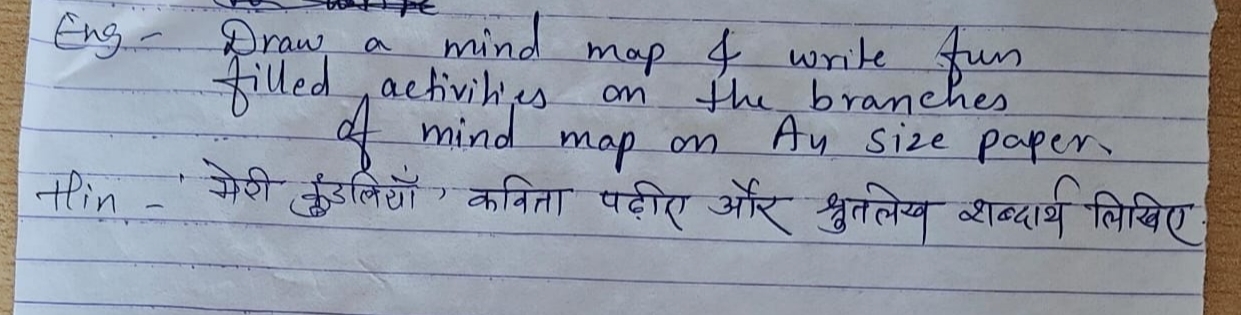 Eng - Draw a mind map & write fun
filled activities on the branches
of mind map on A4 size paper.
Hin - 'मेरी कुंडलियाँ' कविता पढ़ीए और श्रुतलेख शब्दार्थ लिखिए.